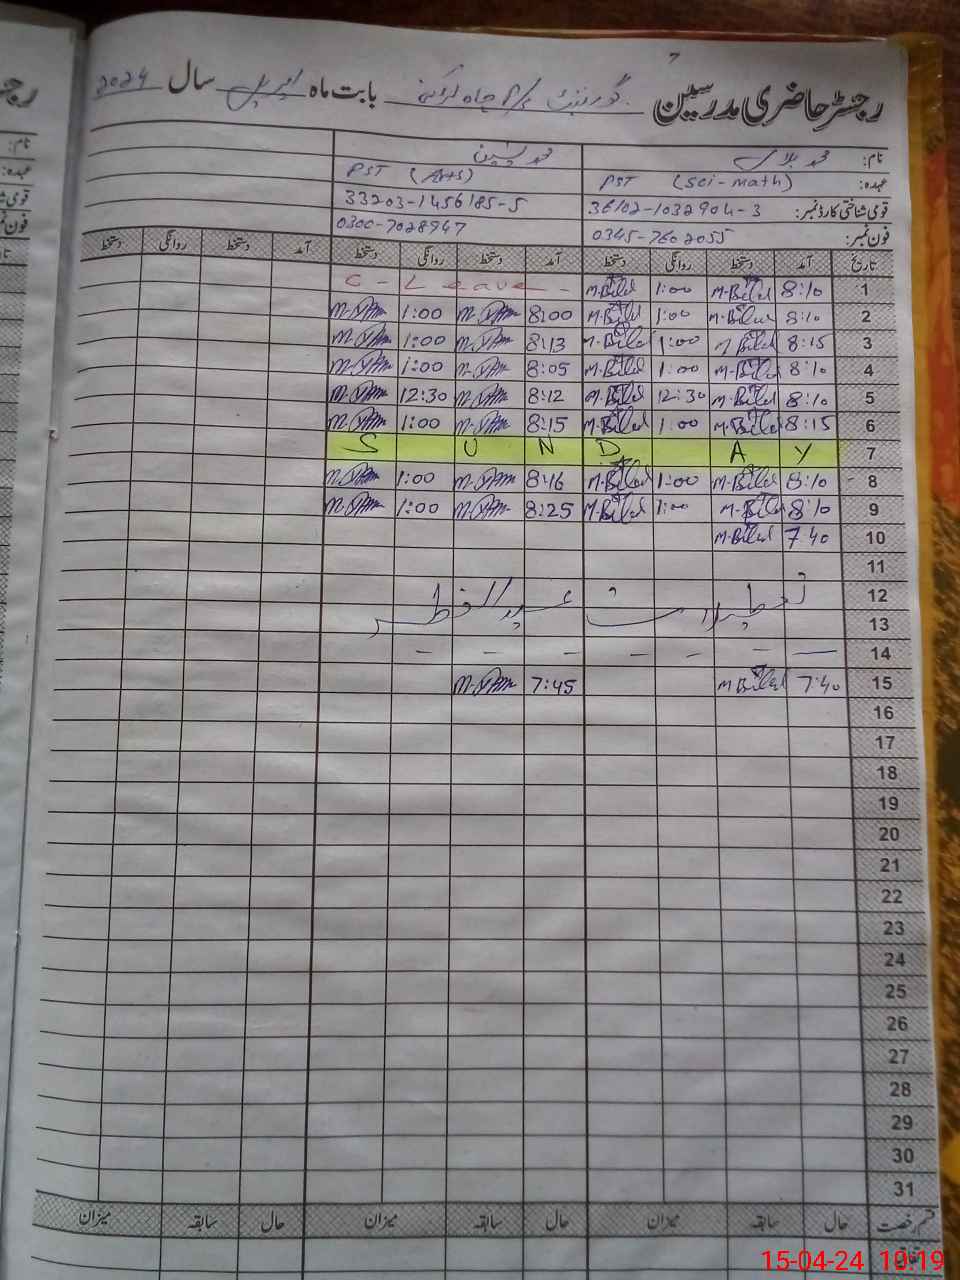 رجسٹر حاضری مدرسین گورنمنٹ بابت ماہ اپریل سال 2024
نام: محمد بلال محمد
عہدہ: PST (Sci-math) PST (Arts)
قومی شناختی کارڈ نمبر: 36102-1032904-3 33203-1456185-5
فون نمبر: 0345-7602055 0300-7028947
تاریخ آمد دستخط روانگی دستخط آمد دستخط روانگی دستخط آمد دستخط روانگی دستخط
1 8:10 M.Bilal 1:00 M.Bilal C-Leave-
2 8:10 M.Bilal 1:00 M.Bilal 8:00 1:00
3 8:15 M.Bilal 1:00 M.Bilal 8:13 1:00
4 8:10 M.Bilal 1:00 M.Bilal 8:05 1:00
5 8:10 M.Bilal 12:30 M.Bilal 8:12 12:30
6 8:15 M.Bilal 1:00 M.Bilal 8:15 1:00
7 S U N D A Y
8 8:10 M.Bilal 1:00 M.Bilal 8:16 1:00
9 8:10 M.Bilal 1:00 M.Bilal 8:25 1:00
10 7:40 M.Bilal
11
12 تعطیلات عید الفطر
13
14
15 7:40 M Bilal 7:45
16
17
18
19
20
21
22
23
24
25
26
27
28
29
30
31
قسم رخصت حال سابقہ میزان حال سابقہ میزان حال سابقہ میزان
15-04-24 10:19